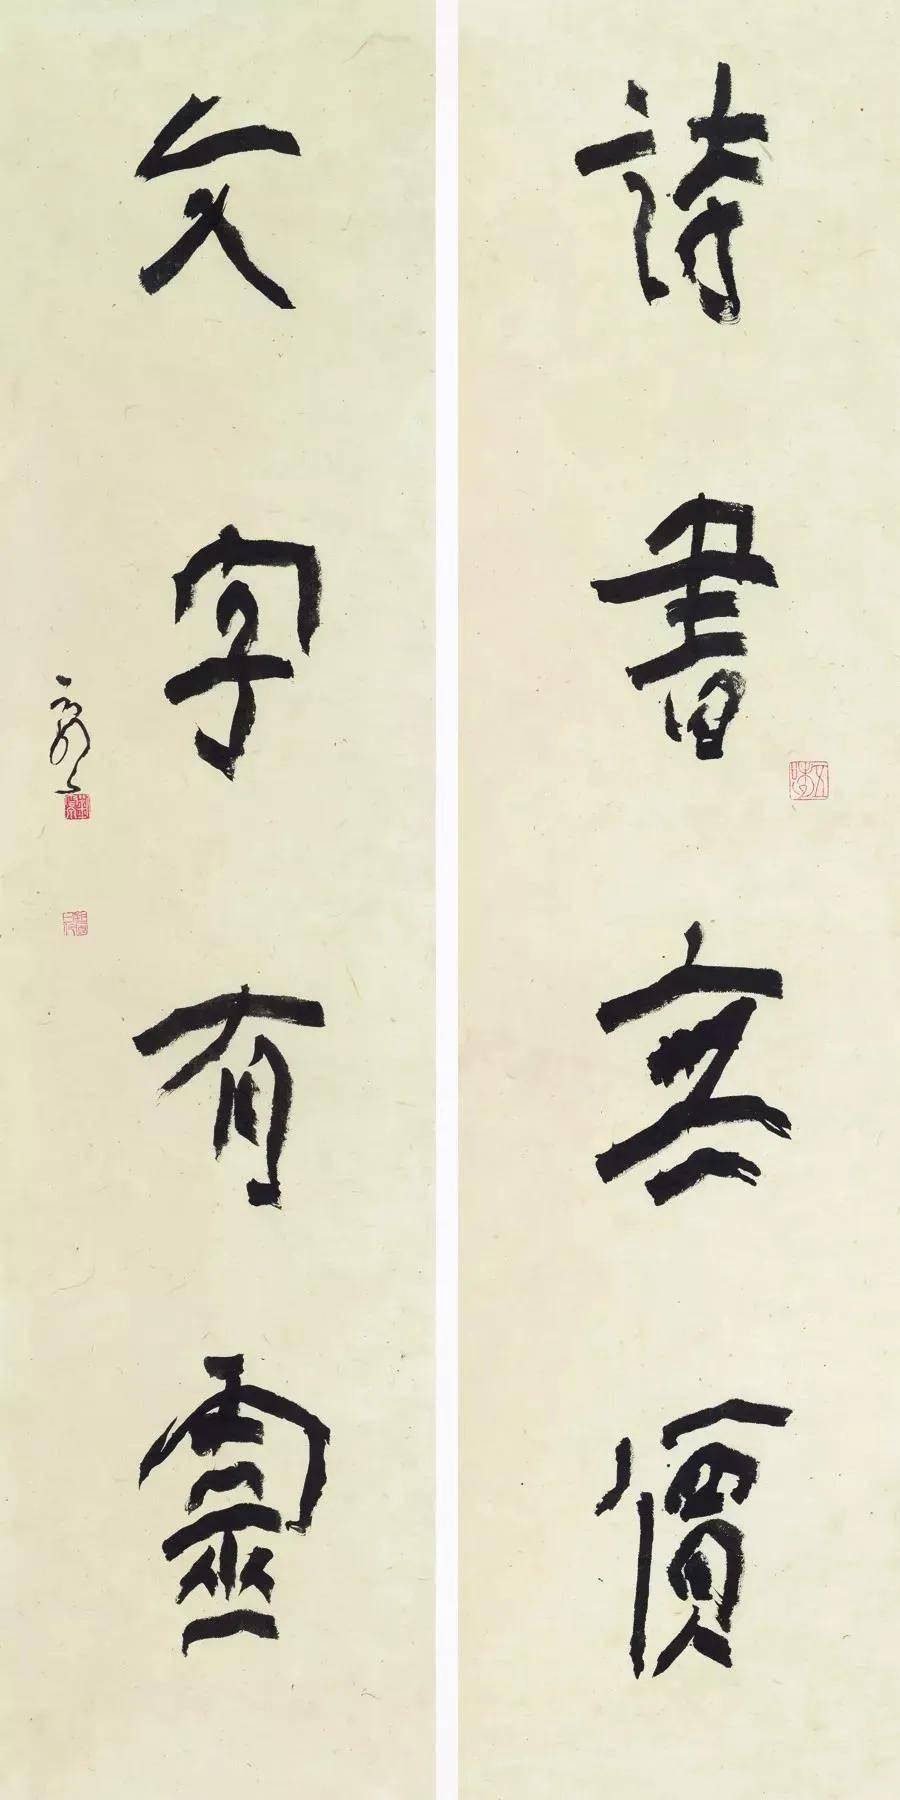 詩書無價
文字有靈